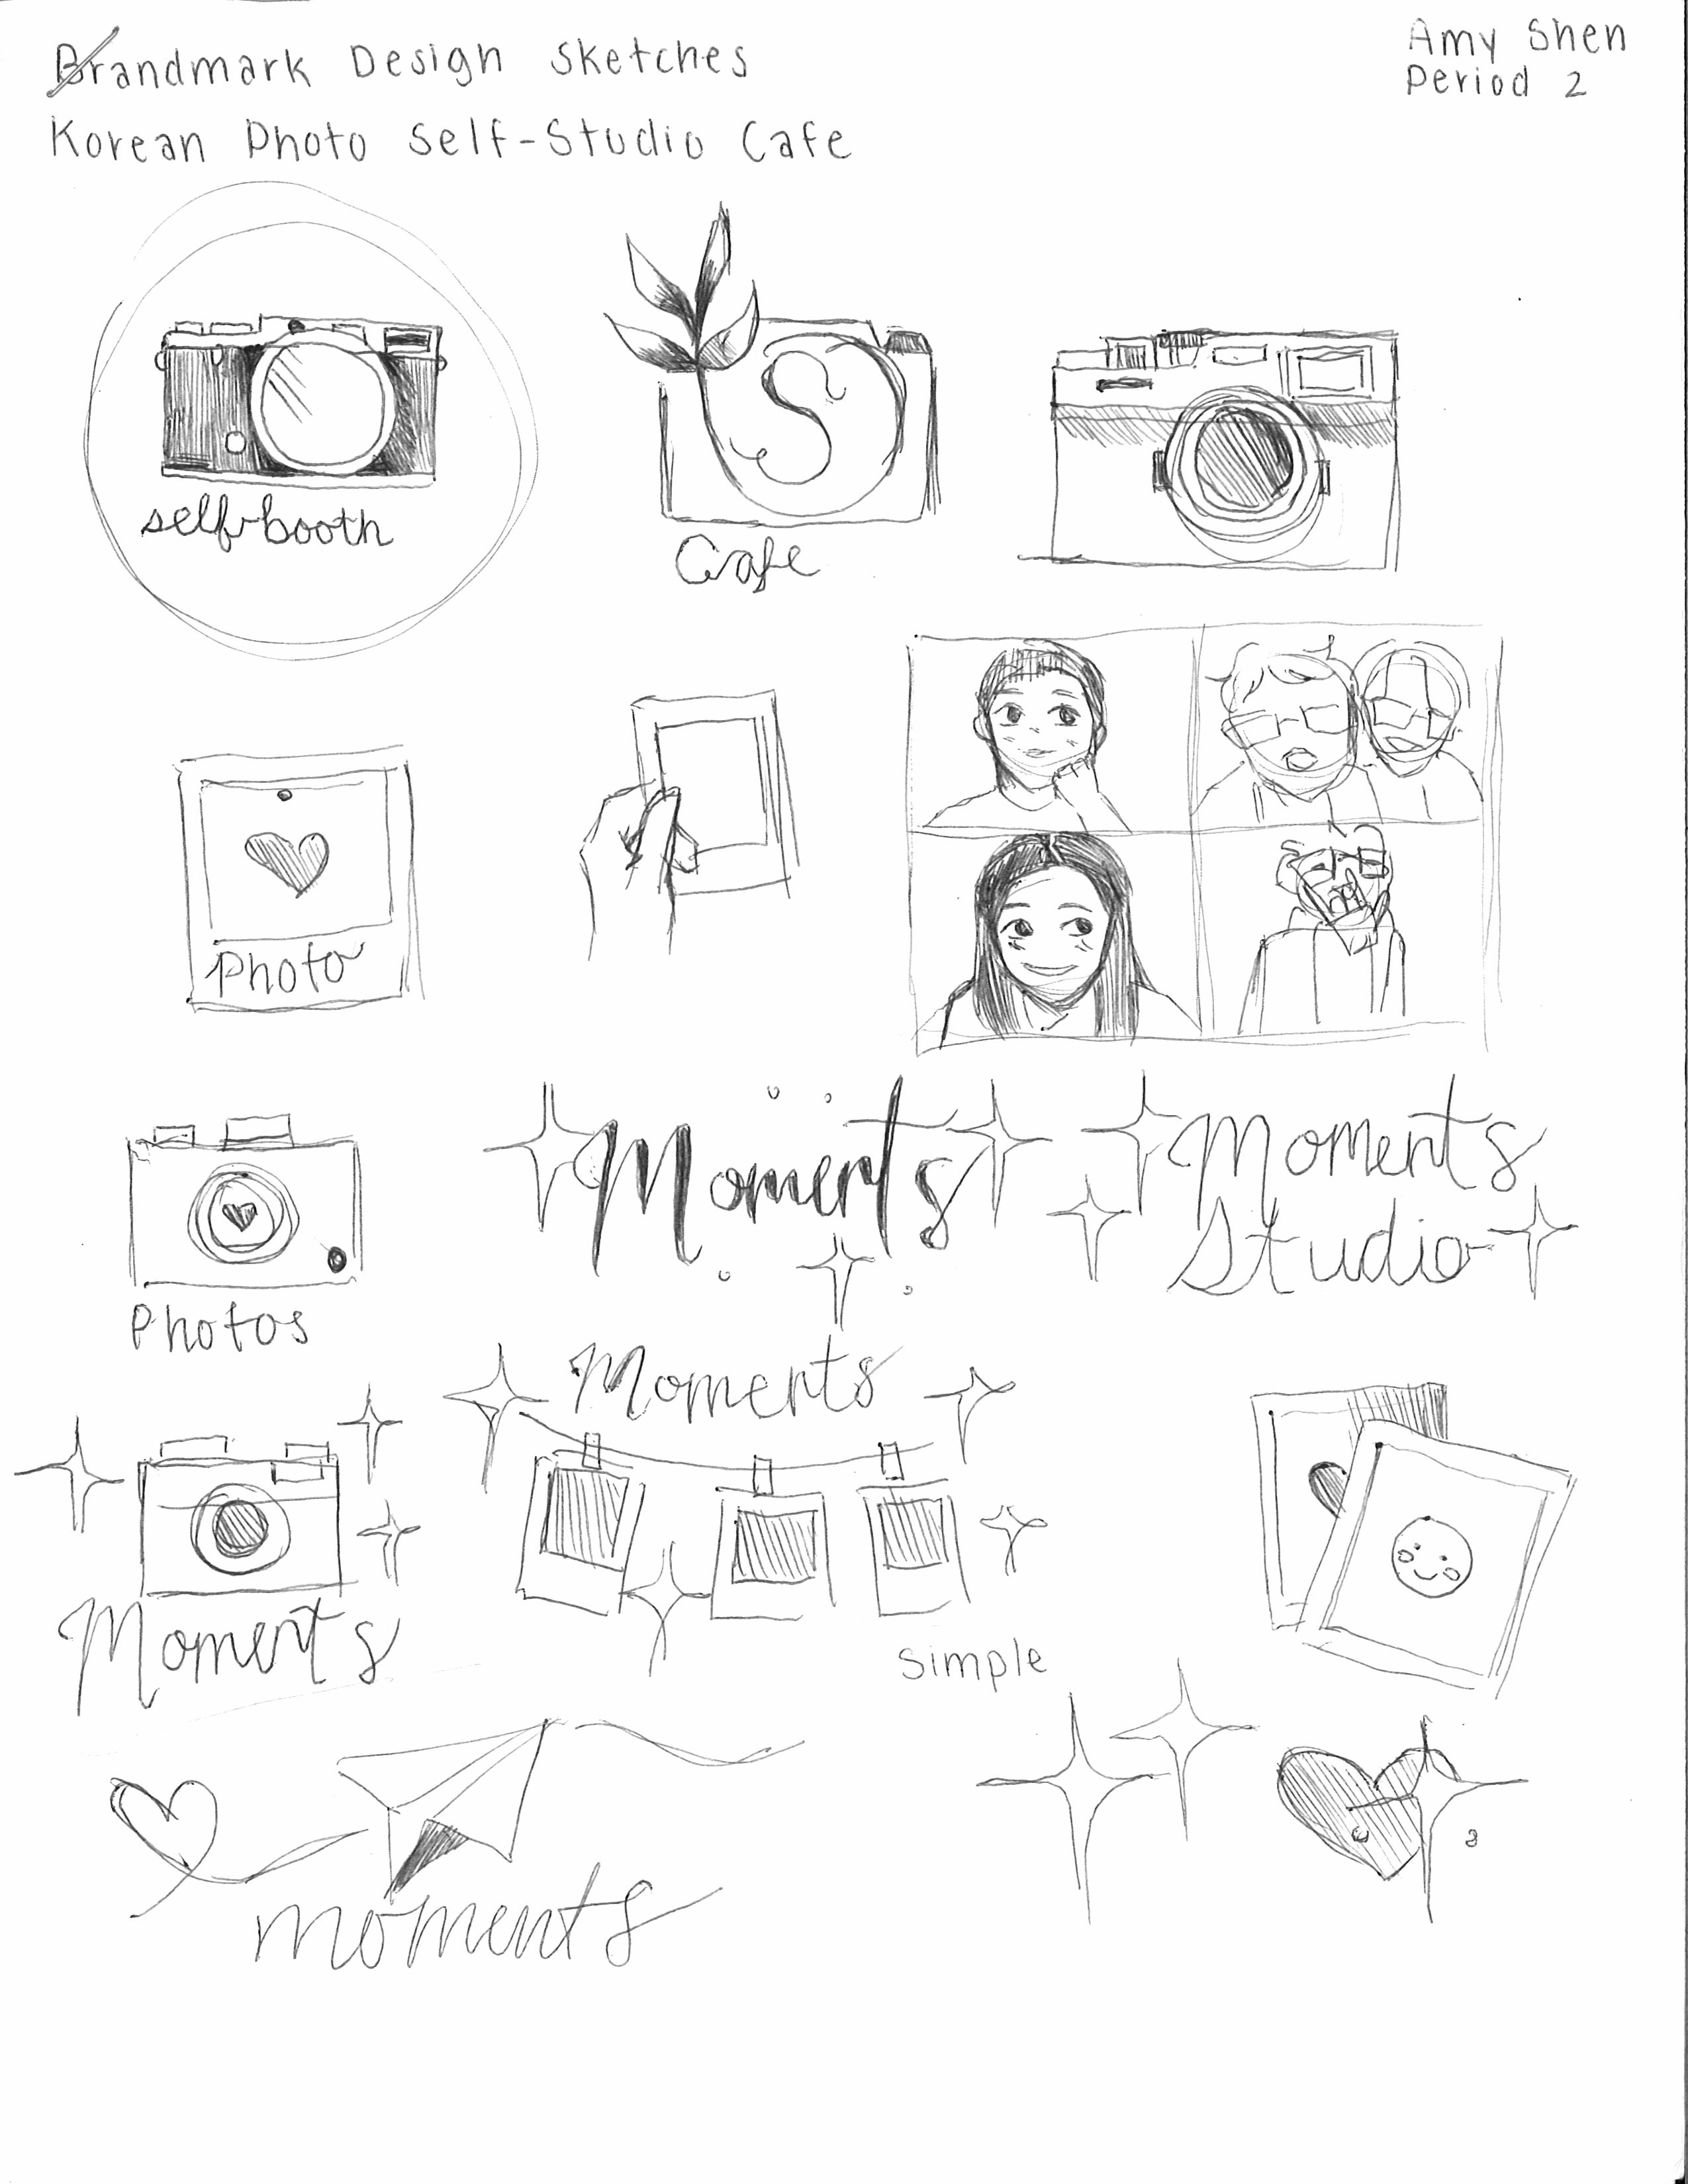 Brandmark Design Sketches
Korean Photo Self-Studio Cafe
Amy Shen
Period 2
self-booth
S
Cafe
Photo
Photos
Moments
Moments
Studio
Moments
Moments
Simple
moments